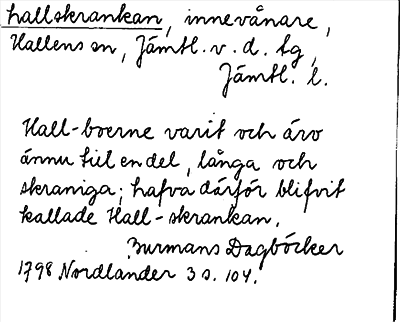 hallskrankan, innevånare,
Hallens sn, Jämtl. v. d. tg,
Jämtl. l.
Hall-boerne varit och äro
ännu til en del, långa och
skraniga; hafva därför blifvit
kallade Hall-skrankan.
Burmans Dagböcker
1798 Nordlander 3 s. 104.